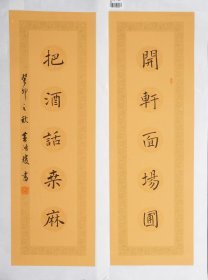 開軒面場圃
把酒話桑麻
癸卯之秋
書